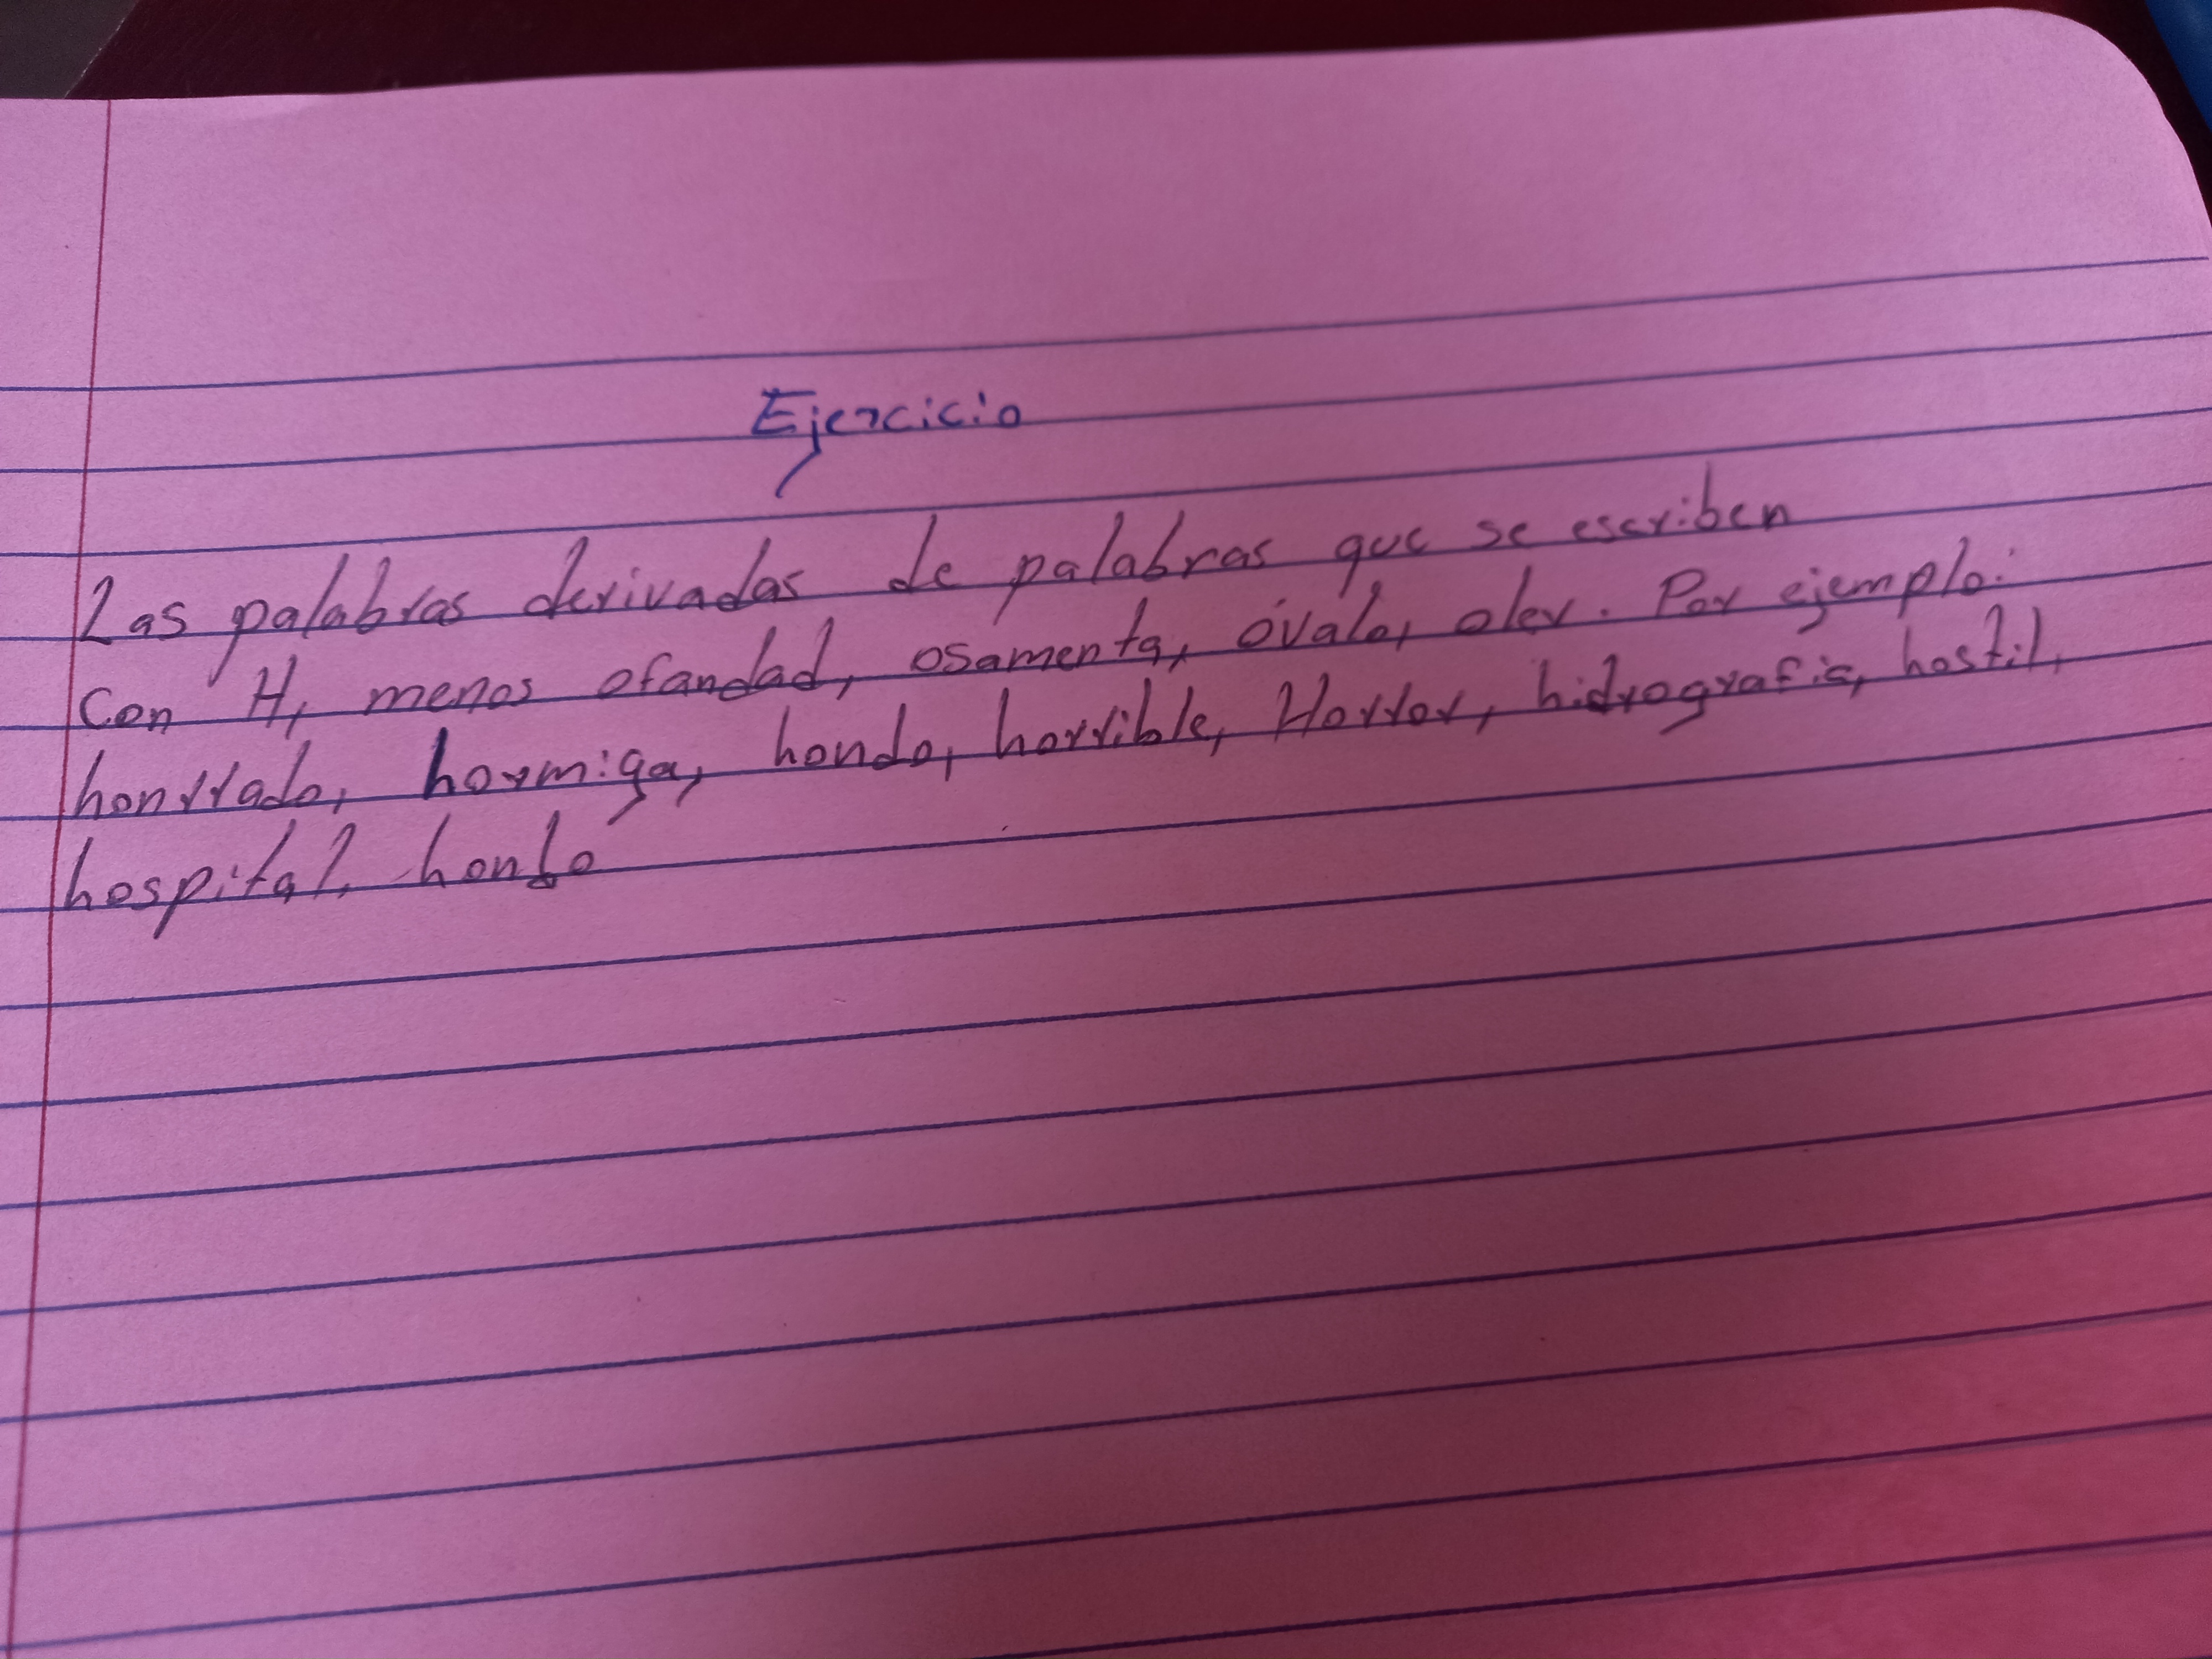 Ejercicio
Las palabras derivadas de palabras que se escriben
Con H, menos ofandad, osamenta, óvalo, oler. Por ejemplo:
honrrado, hormiga, hondo, horrible, Horror, hidrografia, hostil,
hospital, hondo